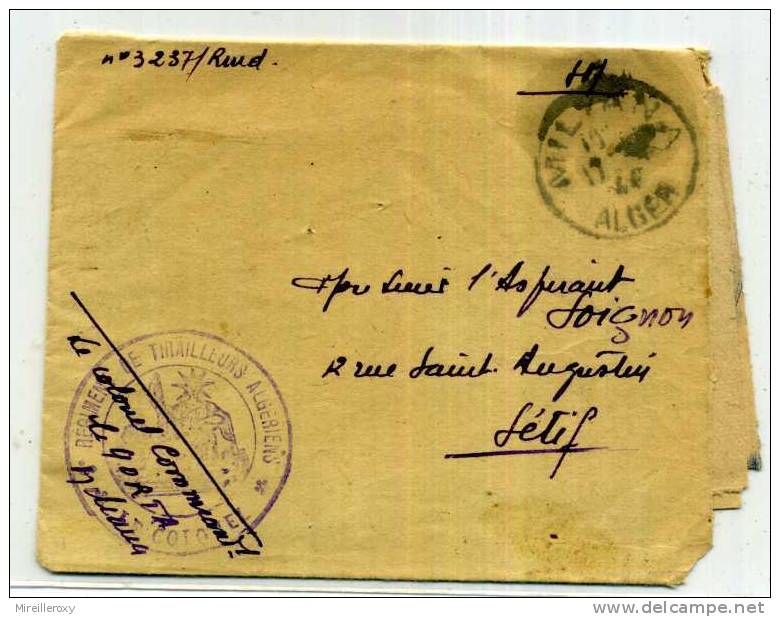 n° 3237/Rmd.
MILIANA
17
ALGER
Monsieur l'Aspirant
Soignon
2 rue Saint Augustin
Sétif
RÉGIMENT DE TIRAILLEURS ALGÉRIENS
Le Colonel Command!
le 9e RTA
Miliana
Mireilleroxy
www.delcampe.net